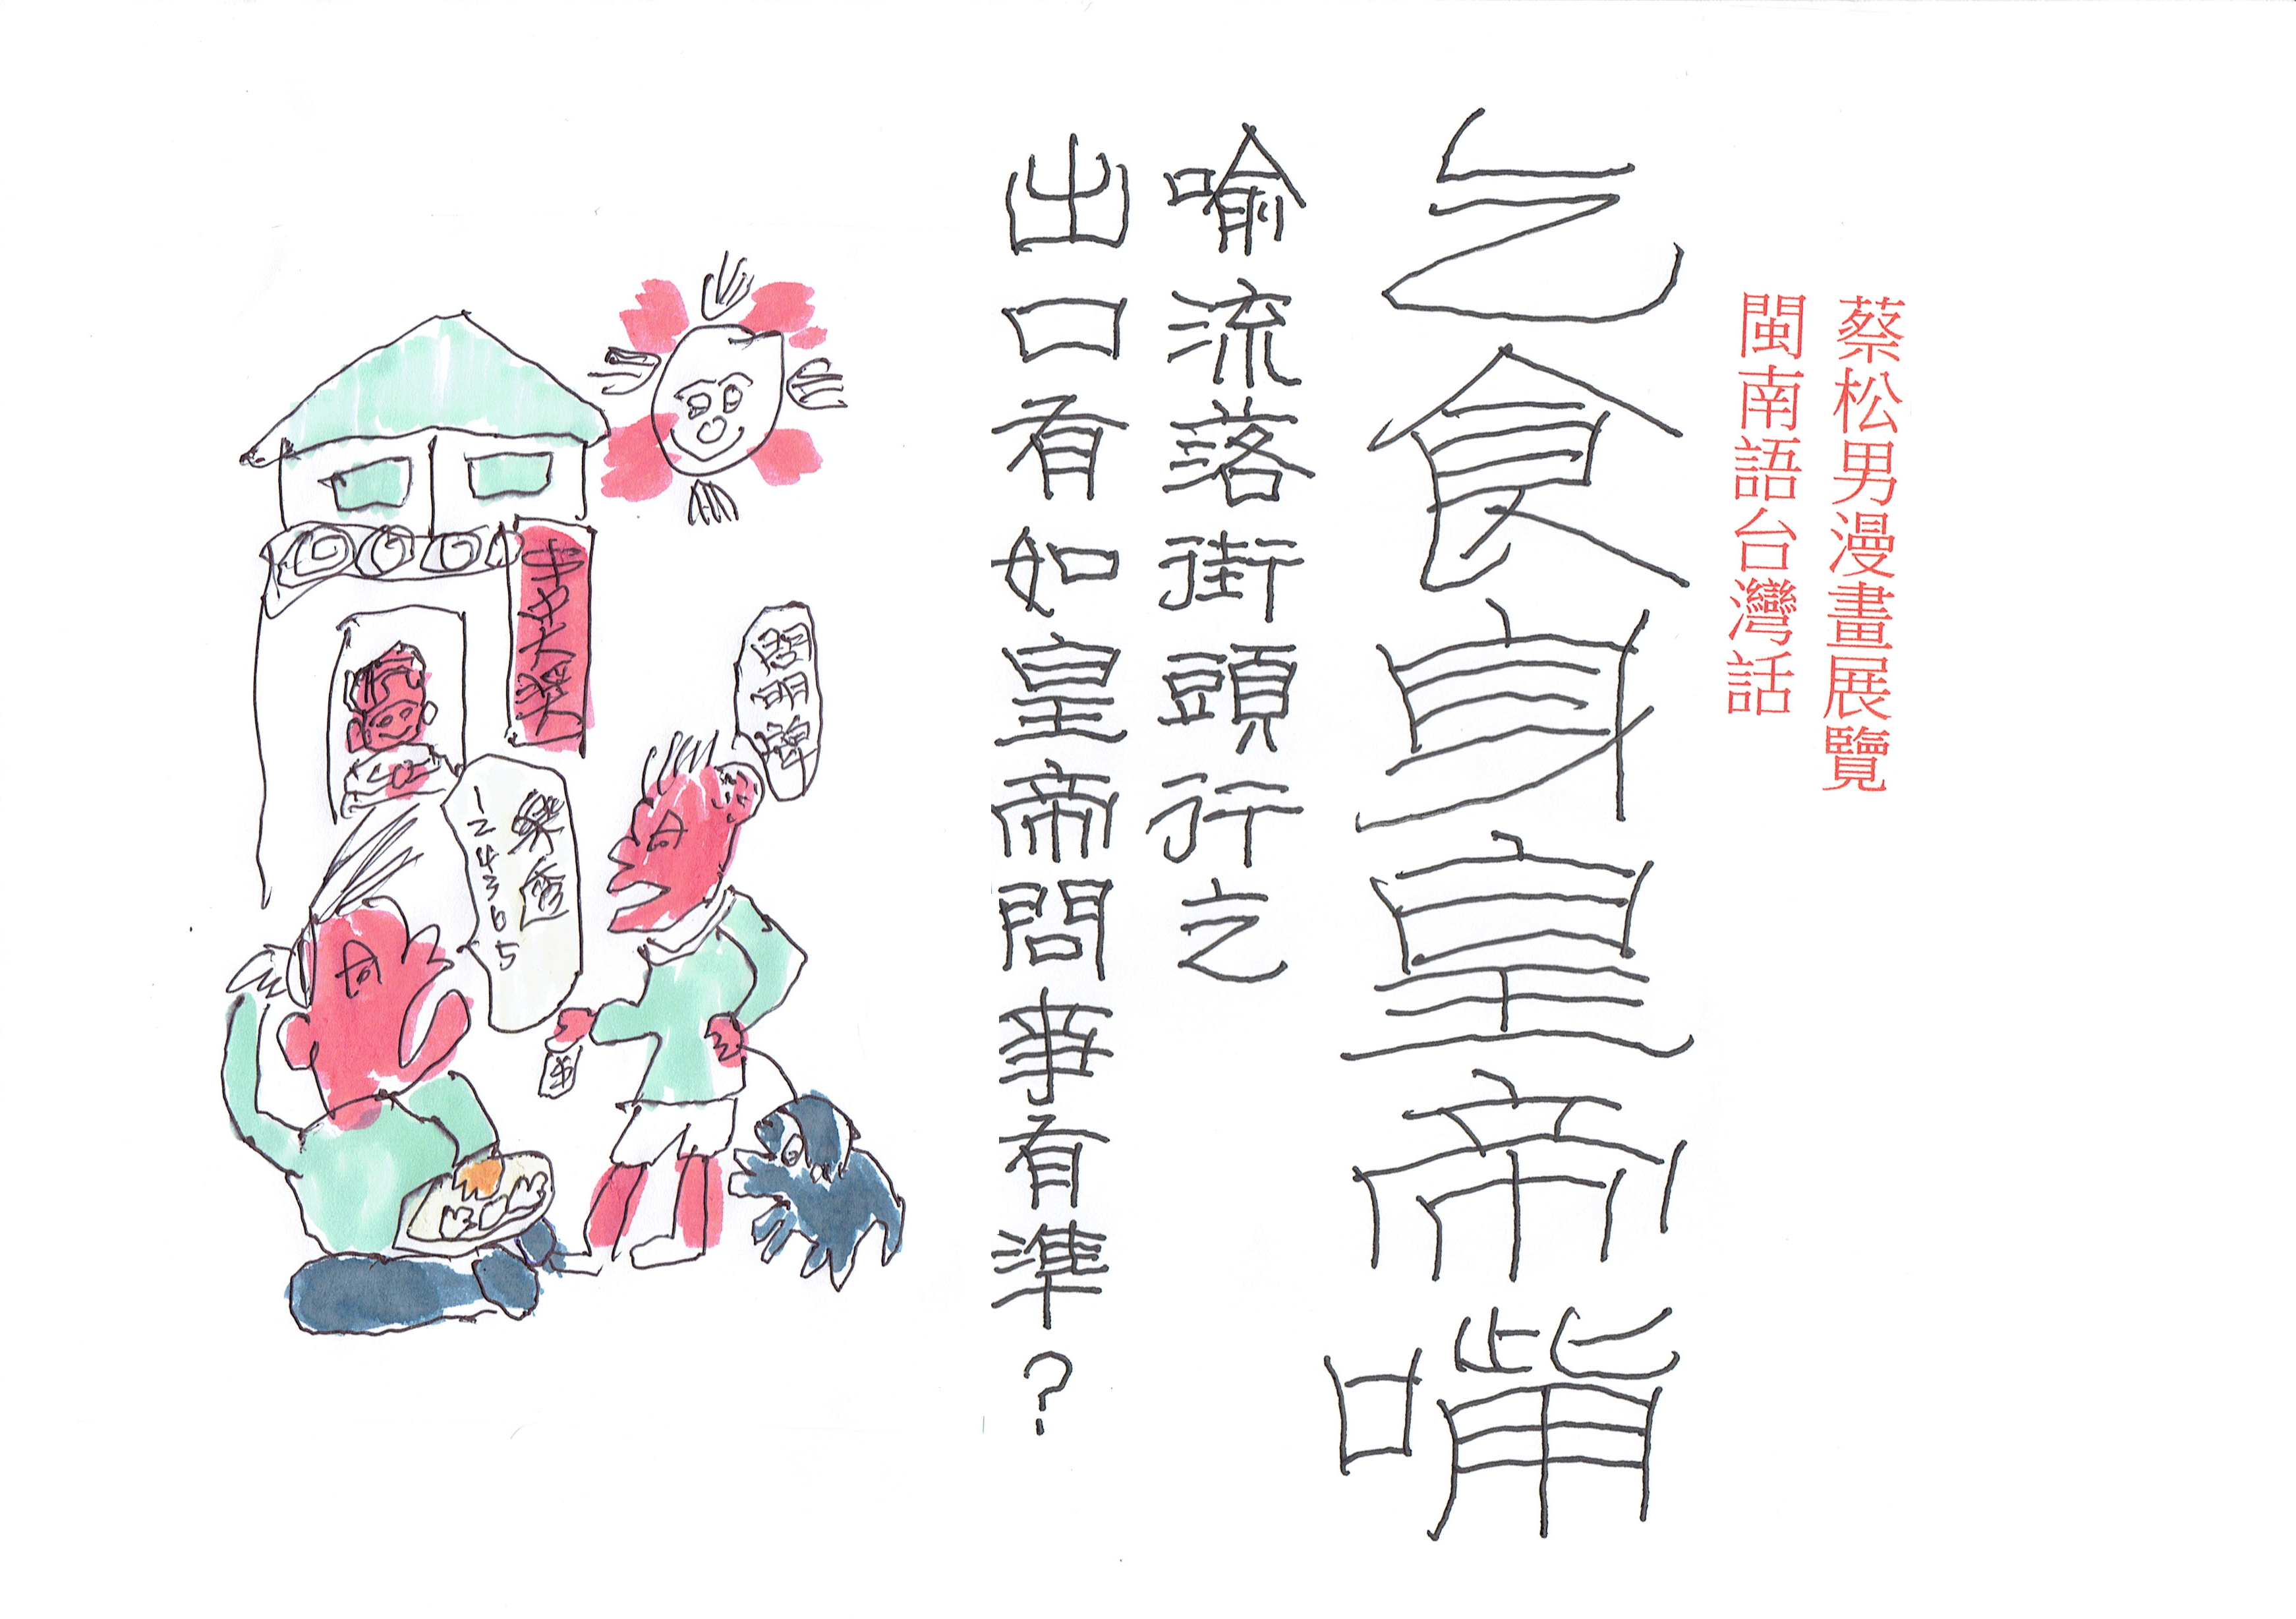 蔡松男漫畫展覽
閩南語台灣話
乞食身皇帝嘴
喻流落街頭行乞
出口有如皇帝問事有準?
問明牌
串串大獎
樂透
124365
$